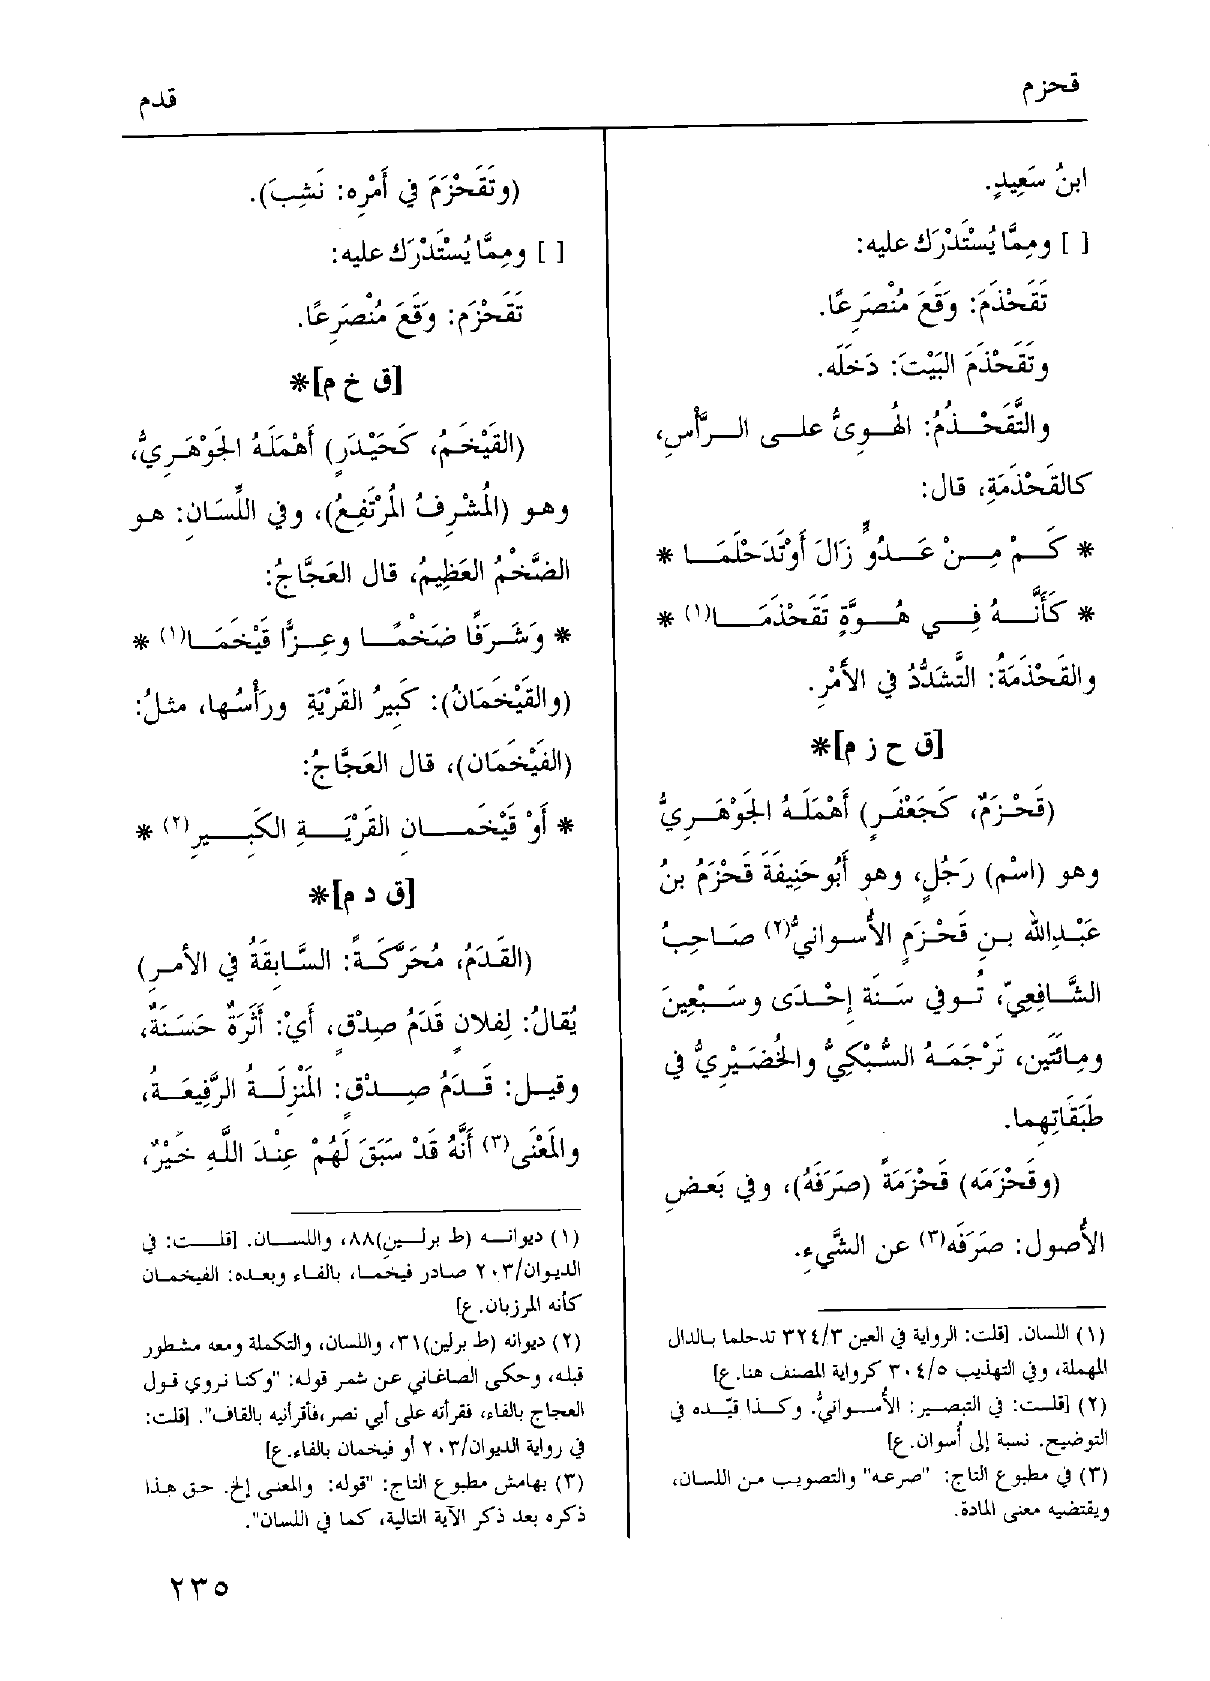 قحزم
قدم
ابنُ سَعِيدٍ.
[ ] ومِمَّا يُسْتَدْرَك عليه:
تَقَحْذَمَ: وَقَعَ مُنْصَرِعًا.
وتَقَحْذَمَ البَيْتَ: دَخَلَه.
والتَّقَحْـذُمُ: الهُـوِيُّ علـى الـرَّأْسِ،
كالقَحْذَمَةِ، قال:
* كَـمْ مِـنْ عَـدُوٍّ زَالَ أَوْ تَدَحْلَمَـا *
* كَأَنَّـهُ فِـي هُـوَّةٍ تَقَحْذَمَـا(١) *
والقَحْذَمَةُ: التَّشَدُّدُ في الأَمْرِ.
[ق ح ز م]*
(قَحْزَمٌ، كَجَعْفَرٍ) أَهْمَلَـهُ الجَوْهَـرِيُّ
وهو (اسْم) رَجُلٍ، وهو أَبُو حَنِيفَةَ قَحْزَمُ بنُ
عَبْـدِالله بـنِ قَحْـزَمٍ الأُسـوانيُّ(٢) صَـاحِبُ
الشَّـافِعِيِّ، تُـوفي سَـنَة إِحْـدَى وسَـبْعِينَ
ومِائَتَين، تَرْجَمَـهُ السُّبْكِيُّ والخُضَيْرِيُّ في
طَبَقَاتِهما.
(وقَحْزَمَه) قَحْزَمَةً (صَرَفَهُ)، وفي بَعضِ
الأُصول: صَرَفَه(٣) عن الشَّيءِ.
(١) اللسان. [قلت: الرواية في العين ٣٢٤/٣ تدحلما بالدال
المهملة، وفي التهذيب ٣٠٤/٥ كرواية المصنف هنا. ع]
(٢) [قلـت: في التبصير: الأُسْـوانيُّ. وكـذا قيّـده في
التوضيح. نسبة إلى أُسوان. ع]
(٣) في مطبوع التاج: "صرعه" والتصويب مـن اللسان،
ويقتضيه معنى المادة.
(وتَقَحْزَمَ في أَمْرِه: نَشِبَ).
[ ] ومِمَّا يُسْتَدْرَك عليه:
تَقَحْزَم: وَقَعَ مُنْصَرِعًا.
[ق خ م]*
(القَيْخَمُ، كَحَيْدَرٍ) أَهْمَلَهُ الجَوْهَـرِيُّ،
وهـو (المُشْرِفُ المُرْتَفِعُ)، وفي اللِّسَانِ: هـو
الضَّخْمُ العَظِيمُ، قال العَجَّاجُ:
* وشَـرَفًا ضَخْمًـا وعِـزًّا قَيْخَمَـا(١) *
(والقَيْخَمَانُ): كَبِيرُ القَرْيَةِ ورَأْسُها، مثلُ:
(الفَيْخَمَان)، قال العَجَّاجُ:
* أَوْ قَيْخَمَـانِ القَرْيَـةِ الكَبِـيرِ(٢) *
[ق د م]*
(القَـدَمُ، مُحَرَّكَـةً: السَّـابِقَةُ في الأمـرِ)
يُقالُ: لِفلانٍ قَدَمُ صِدْقٍ، أَيْ: أَثَرَةٌ حَسَنَةٌ،
وقيـل: قَـدَمُ صِـدْقٍ: المَنْزِلَـةُ الرَّفِيعَـةُ،
والمَعْنَى(٣) أَنَّهُ قَدْ سَبَقَ لَهُمْ عِنْدَ اللَّهِ خَيْرٌ،
(١) ديوانـه (ط برلـين)٨٨، واللسـان. [قلـت: في
الديوان/٢٠٣ صادر فيخما، بالفاء وبعده: الفيخمان
كأنه المرزبان. ع]
(٢) ديوانه (ط برلين)٣١، واللسان، والتكملة ومعه مشطور
قبله، وحكى الصاغاني عن شمر قوله: "وكنا نروي قول
العجاج بالفاء، فقرأته على أبي نصر،فأقرأنيه بالقاف". [قلت:
في رواية الديوان/٢٠٣ أو فيخمان بالفاء. ع]
(٣) بهامش مطبوع التاج: "قوله: والمعنى إلخ. حق هذا
ذكره بعد ذكر الآية التالية، كما في اللسان".
٢٣٥